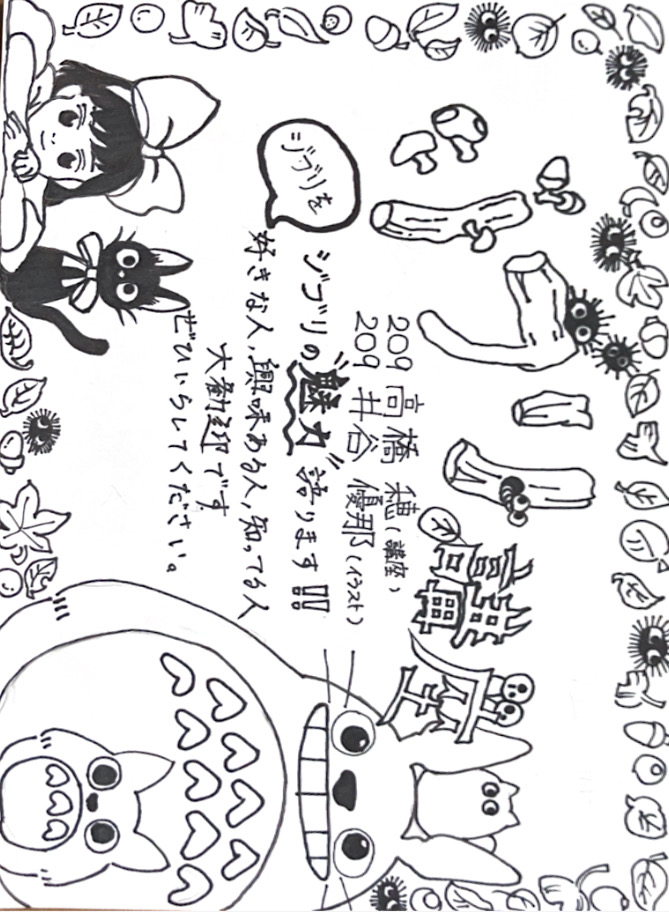 ジブリ講座
209 高橋 穂(講座)
209 井谷 優那(イラスト)
ジブリの"魅力"語ります!!
ジブリを
好きな人,興味ある人,知ってる人
大歓迎です
ぜひいらしてください。